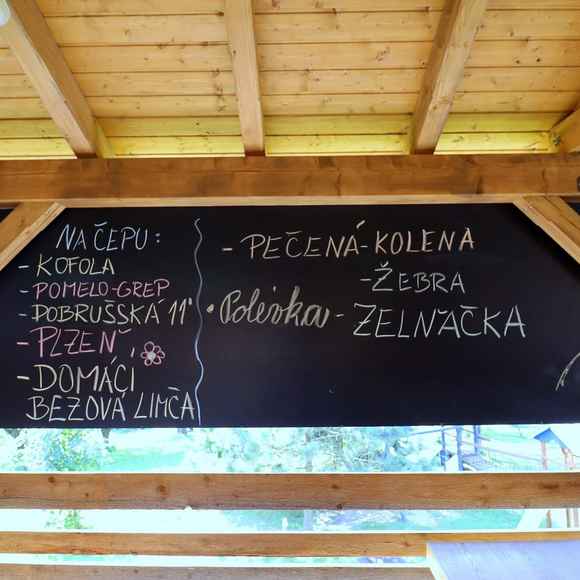 NA ČEPU:
- KOFOLA
- POMELO-GREP
- DOBRUŠSKÁ 11°
- PLZEŇ,
- DOMÁCÍ
BEZOVÁ LIMČA
- PEČENÁ - KOLENA
- ŽEBRA
• Polévka - ZELŇAČKA